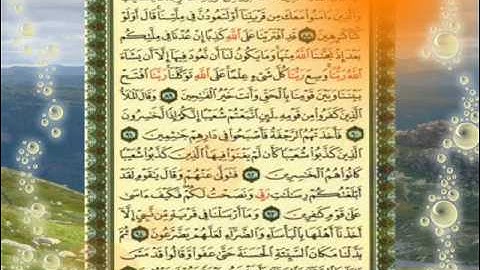 وَالَّذِينَ ءَامَنُوا مَعَكَ مِن قَرْيَتِنَا أَوْ لَتَعُودُنَّ فِي مِلَّتِنَا قَالَ أَوَلَوْ
كُنَّا كَٰرِهِينَ ٨٨ قَدِ افْتَرَيْنَا عَلَى اللَّهِ كَذِبًا إِنْ عُدْنَا فِي مِلَّتِكُم
بَعْدَ إِذْ نَجَّىٰنَا اللَّهُ مِنْهَا وَمَا يَكُونُ لَنَا أَن نَّعُودَ فِيهَا إِلَّا أَن يَشَاءَ
اللَّهُ رَبُّنَا وَسِعَ رَبُّنَا كُلَّ شَيْءٍ عِلْمًا عَلَى اللَّهِ تَوَكَّلْنَا رَبَّنَا افْتَحْ
بَيْنَنَا وَبَيْنَ قَوْمِنَا بِالْحَقِّ وَأَنتَ خَيْرُ الْفَٰتِحِينَ ٨٩ وَقَالَ الْمَلَأُ
الَّذِينَ كَفَرُوا مِن قَوْمِهِ لَئِنِ اتَّبَعْتُمْ شُعَيْبًا إِنَّكُمْ إِذًا لَّخَٰسِرُونَ
٩٠ فَأَخَذَتْهُمُ الرَّجْفَةُ فَأَصْبَحُوا فِي دَارِهِمْ جَٰثِمِينَ ٩١
الَّذِينَ كَذَّبُوا شُعَيْبًا كَأَن لَّمْ يَغْنَوْا فِيهَا الَّذِينَ كَذَّبُوا شُعَيْبًا
كَانُوا هُمُ الْخَٰسِرِينَ ٩٢ فَتَوَلَّىٰ عَنْهُمْ وَقَالَ يَٰقَوْمِ لَقَدْ
أَبْلَغْتُكُمْ رِسَٰلَٰتِ رَبِّي وَنَصَحْتُ لَكُمْ فَكَيْفَ ءَاسَىٰ
عَلَىٰ قَوْمٍ كَٰفِرِينَ ٩٣ وَمَا أَرْسَلْنَا فِي قَرْيَةٍ مِّن نَّبِيٍّ إِلَّا
أَخَذْنَا أَهْلَهَا بِالْبَأْسَاءِ وَالضَّرَّاءِ لَعَلَّهُمْ يَضَّرَّعُونَ ٩٤ ثُمَّ
بَدَّلْنَا مَكَانَ السَّيِّئَةِ الْحَسَنَةَ حَتَّىٰ عَفَوا وَّقَالُوا قَدْ مَسَّ